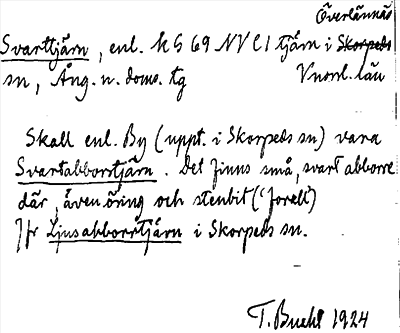 Överlännäs
Svarttjärn, enl. KS 69 NV C1 tjärn i Skorpeds
sn, Ång. n. doms. tg Vnorrl. län
Skall enl. By (uppt. i Skorpeds sn) vara
Svartabborrtjärn. Det finns små, svart abborre
där, även öring och stenbit ('forell')
Jfr Ljusabborrtjärn i Skorpeds sn.
T. Bucht 1924